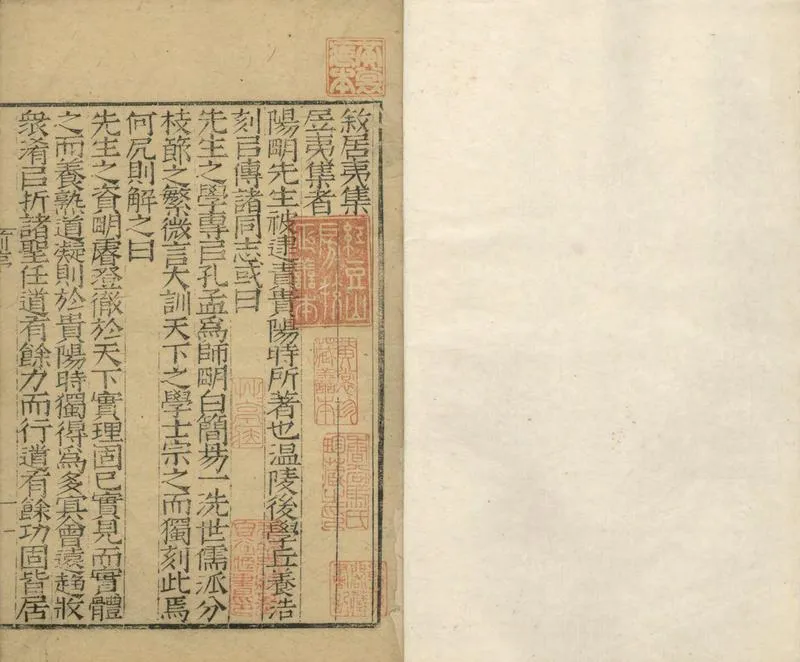 敘居夷集
居夷集者
陽明先生被逮責貴陽時所著也溫陵後學丘養浩
刻㠯傳諸同志或曰
先生之學專㠯孔孟為師明白簡易一洗世儒派分
枝節之繁微言大訓天下之學士宗之而獨刻此焉
何凥則解之曰
先生之資明睿澄徹於天下實理固已實見而實體
之而養熟道凝則於貴陽時獨得為多冥會遠趨收
衆淆㠯折諸聖任道有餘力而行道有餘功固皆居
紅豆山房校正善本